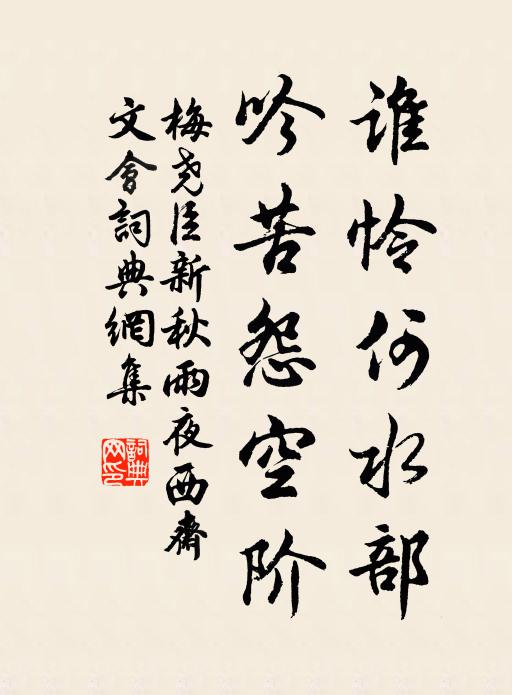 谁怜何水部
吟苦怨空阶
梅尧臣新秋雨夜西斋
文會詞典網集
詞典网印